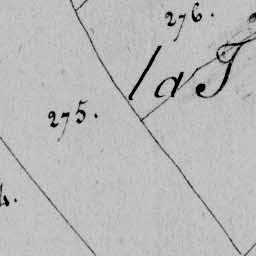 276.
la T
275.
4.